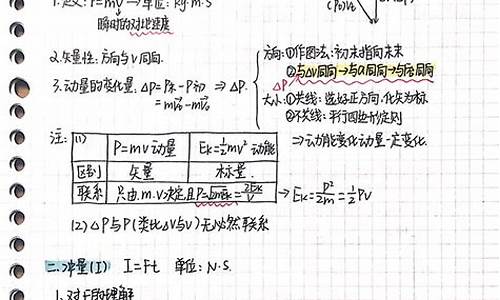 1.定义: P=mv → 单位: kg·m·s
瞬时的对地速度
2.矢量性: 方向与v同向.
3.动量的变化量, ΔP=P末-P初 ⇒ ΔP.
=mv末-mv0
方向: ①作图法: 初末指向末
②与Δv同向→与a同向→与F合同向
ΔP
大小: ①共线: 选好正方向, 化矢为标
②不共线: 平行四边形定则
⇒动能变化动量一定变化.
注: (1)
P=mv 动量 Ek=½mv² 动能
区别 矢量 标量.
联系 只由.m.v.决定且P=√2mEk=2Ek/v → Ek=P²/2m=½Pv
(2) ΔP与P(类比Δv与v)无必然联系
二.冲量(I) I=Ft 单位: N·S.
1.对F的理解